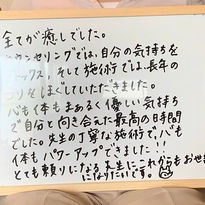 全てが癒しでした。
カウンセリングでは、自分の気持ちを
そして施術では、長年の
コリをほぐしていただきました。
心も体もまぁるく優しい気持ち
で自分と向き合えた最高の時間
でした。先生の丁寧な施術で、心も
体もパワーアップできました!!
とても頼りになる先生にこれからもお世話
になりたいです。